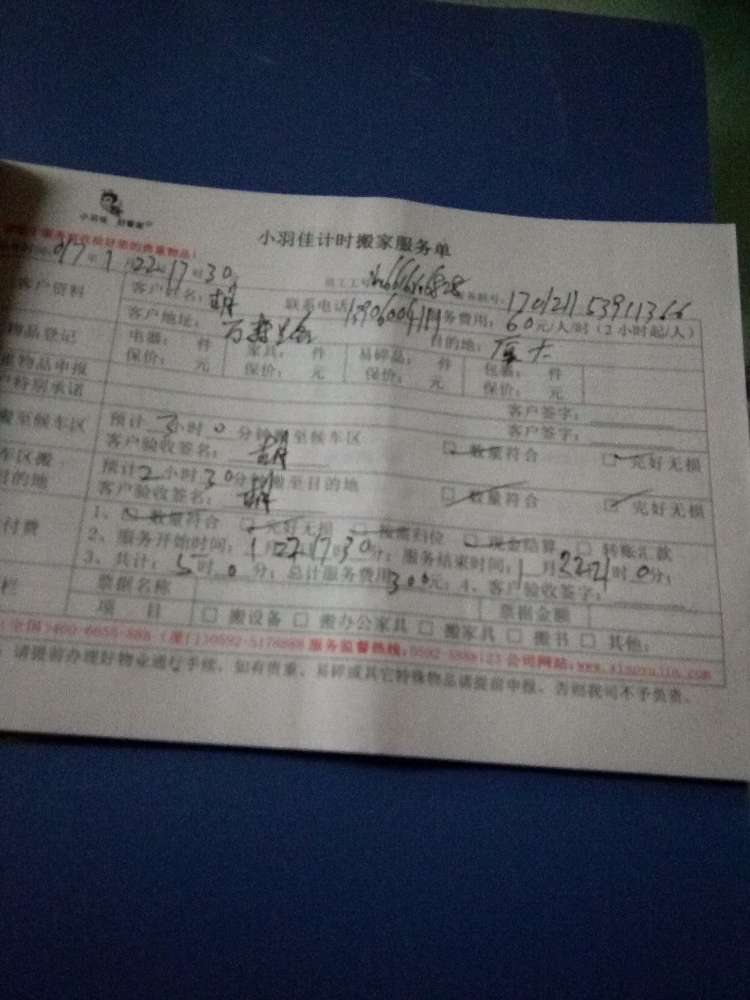 小羽佳计时搬家服务单
年1月22日17时30
客户资料 客户姓名:胡 联系电话 服务费用:60元/人/时(2小时起/人)
客户地址: 目的地:厦大
物品登记 电器: 件 家具: 件 易碎品: 件 包裹: 件
物品申报 保价: 元 保价: 元 保价: 元 保价: 元
特别承诺 客户签字:
搬至候车区 预计3小时0分钟搬至候车区 客户签字:
客户验收签名:胡 数量符合 完好无损
车区搬 预计2小时30分钟搬至目的地
目的地 客户验收签名:胡 数量符合 完好无损
付费 1、 数量符合 完好无损 按需归位 现金结算 转账汇款
2、服务开始时间:1月22日17时30分;服务结束时间:1月22日21时0分;
3、共计:5时0分;总计服务费用300元;4、客户验收签字:
栏 票据名称 票据金额
项目 搬设备 搬办公家具 搬家具 搬书 其他:
服务监督热线: 公司网站:www.xiaoyujia.com
请提前办理好物业通行手续,如有贵重、易碎或其它特殊物品请提前申报,否则我司不予负责。